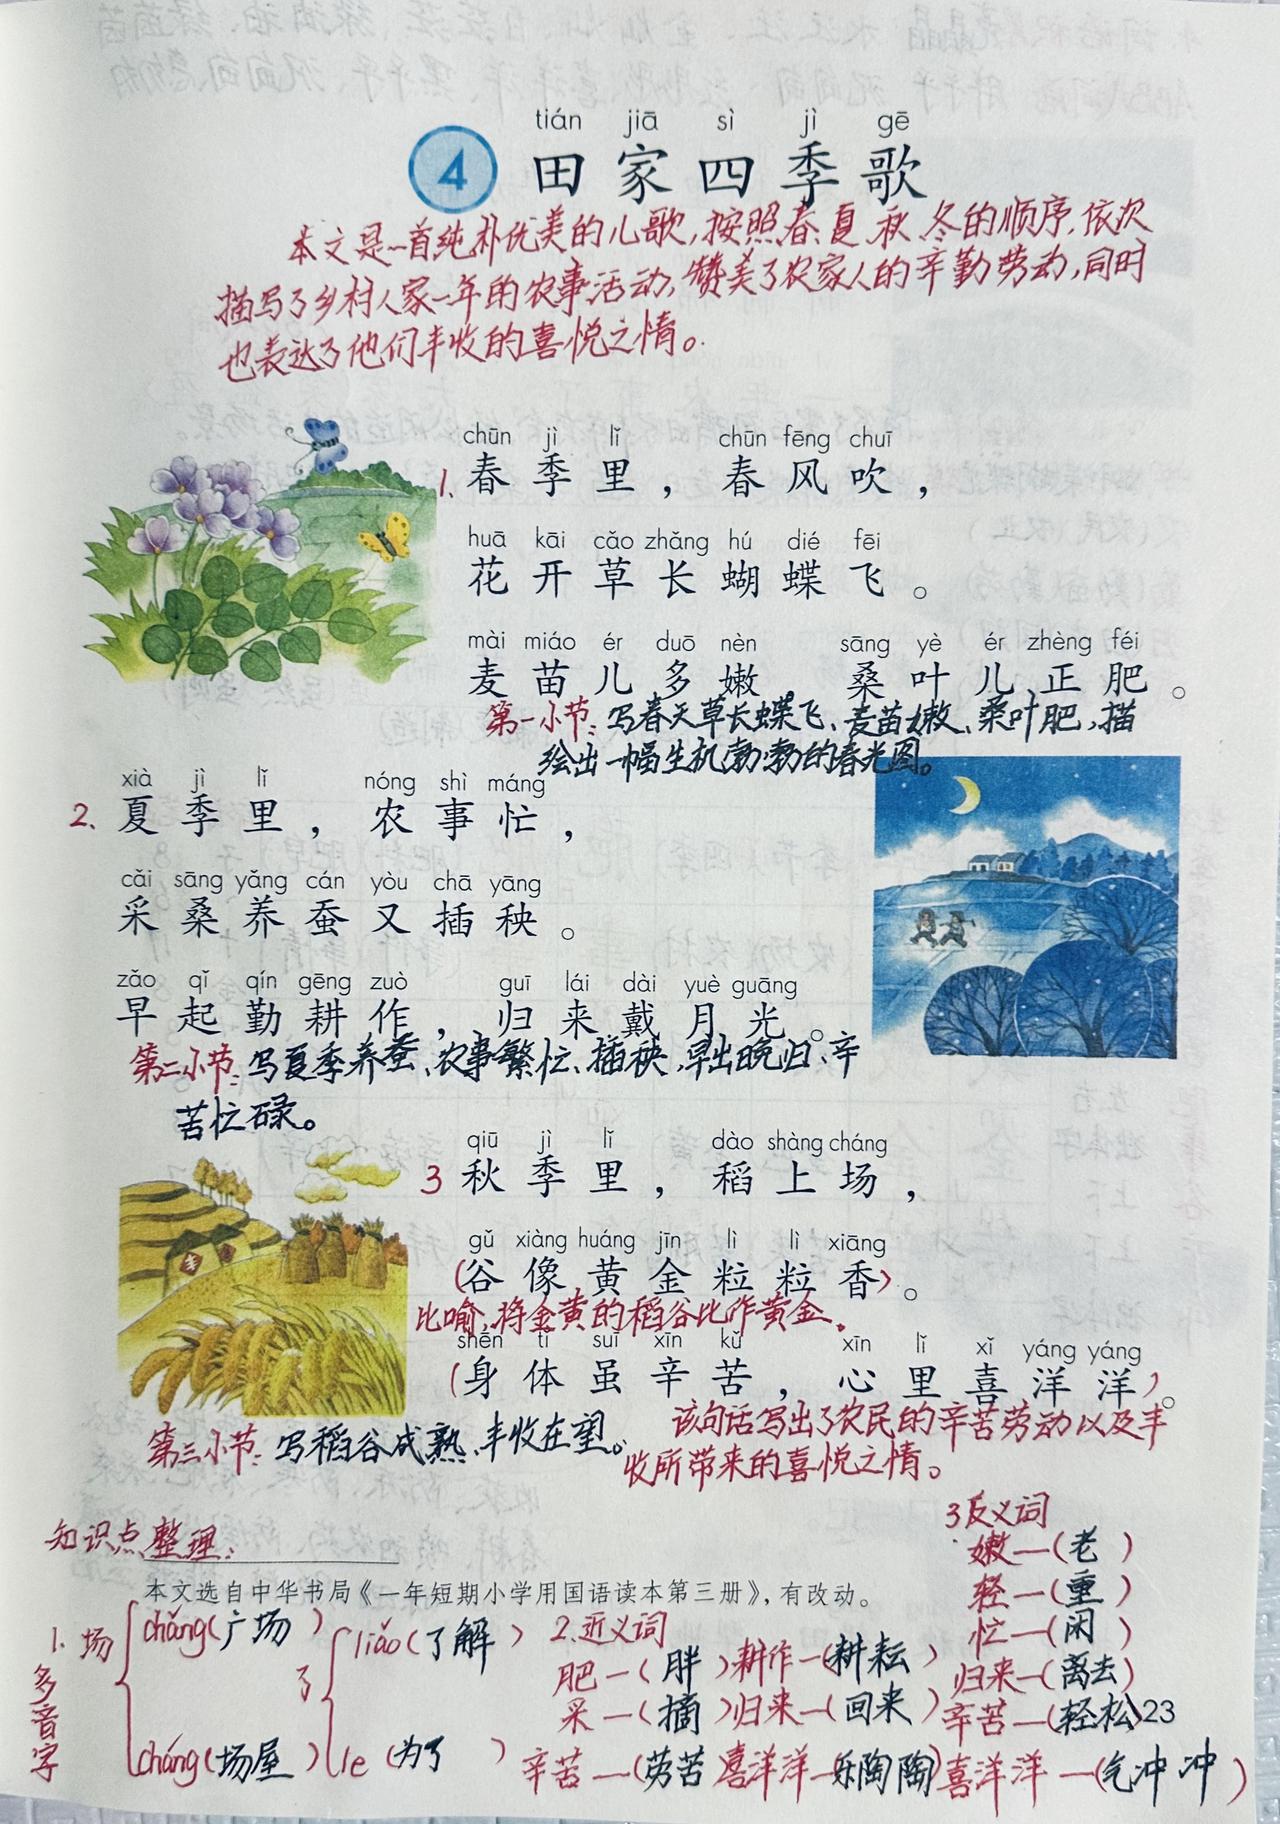 tián jiā sì jì gē
4 田家四季歌
本文是一首纯朴优美的儿歌,按照春、夏、秋、冬的顺序,依次
描写了乡村人家一年的农事活动,赞美了农家人的辛勤劳动,同时
也表达了他们丰收的喜悦之情。
chūn jì lǐ chūn fēng chuī
1. 春季里，春风吹，
huā kāi cǎo zhǎng hú dié fēi
花开草长蝴蝶飞。
mài miáo ér duō nèn sāng yè ér zhèng féi
麦苗儿多嫩 桑叶儿正肥。
第一小节:写春天草长蝶飞、麦苗嫩、桑叶肥,描
绘出一幅生机勃勃的春光图。
xià jì lǐ nóng shì máng
2、夏季里，农事忙，
cǎi sāng yǎng cán yòu chā yāng
采桑养蚕又插秧。
zǎo qǐ qín gēng zuò guī lái dài yuè guāng
早起勤耕作，归来戴月光。
第二小节:写夏季养蚕、农事繁忙、插秧,早出晚归、辛
苦忙碌。
qiū jì lǐ dào shàng cháng
3 秋季里，稻上场，
gǔ xiàng huáng jīn lì lì xiāng
(谷像黄金粒粒香)。
比喻,将金黄的稻谷比作黄金。
shēn tǐ suī xīn kǔ xīn lǐ xǐ yáng yáng
(身体虽辛苦，心里喜洋洋)。
该句话写出了农民的辛苦劳动以及丰
第三小节:写稻谷成熟、丰收在望。
收所带来的喜悦之情。
知识点整理:
3反义词
嫩—(老)
本文选自中华书局《一年短期小学用国语读本第三册》，有改动。
轻—(重)
1. 场 chǎng(广场) 了 liǎo(了解) 2.近义词 忙—(闲)
多音字
肥—(胖) 耕作—(耕耘) 归来—(离去)
采—(摘) 归来—(回来) 辛苦—(轻松) 23
cháng(场屋) le(为了) 辛苦—(劳苦 喜洋洋—乐陶陶) 喜洋洋—(气冲冲)